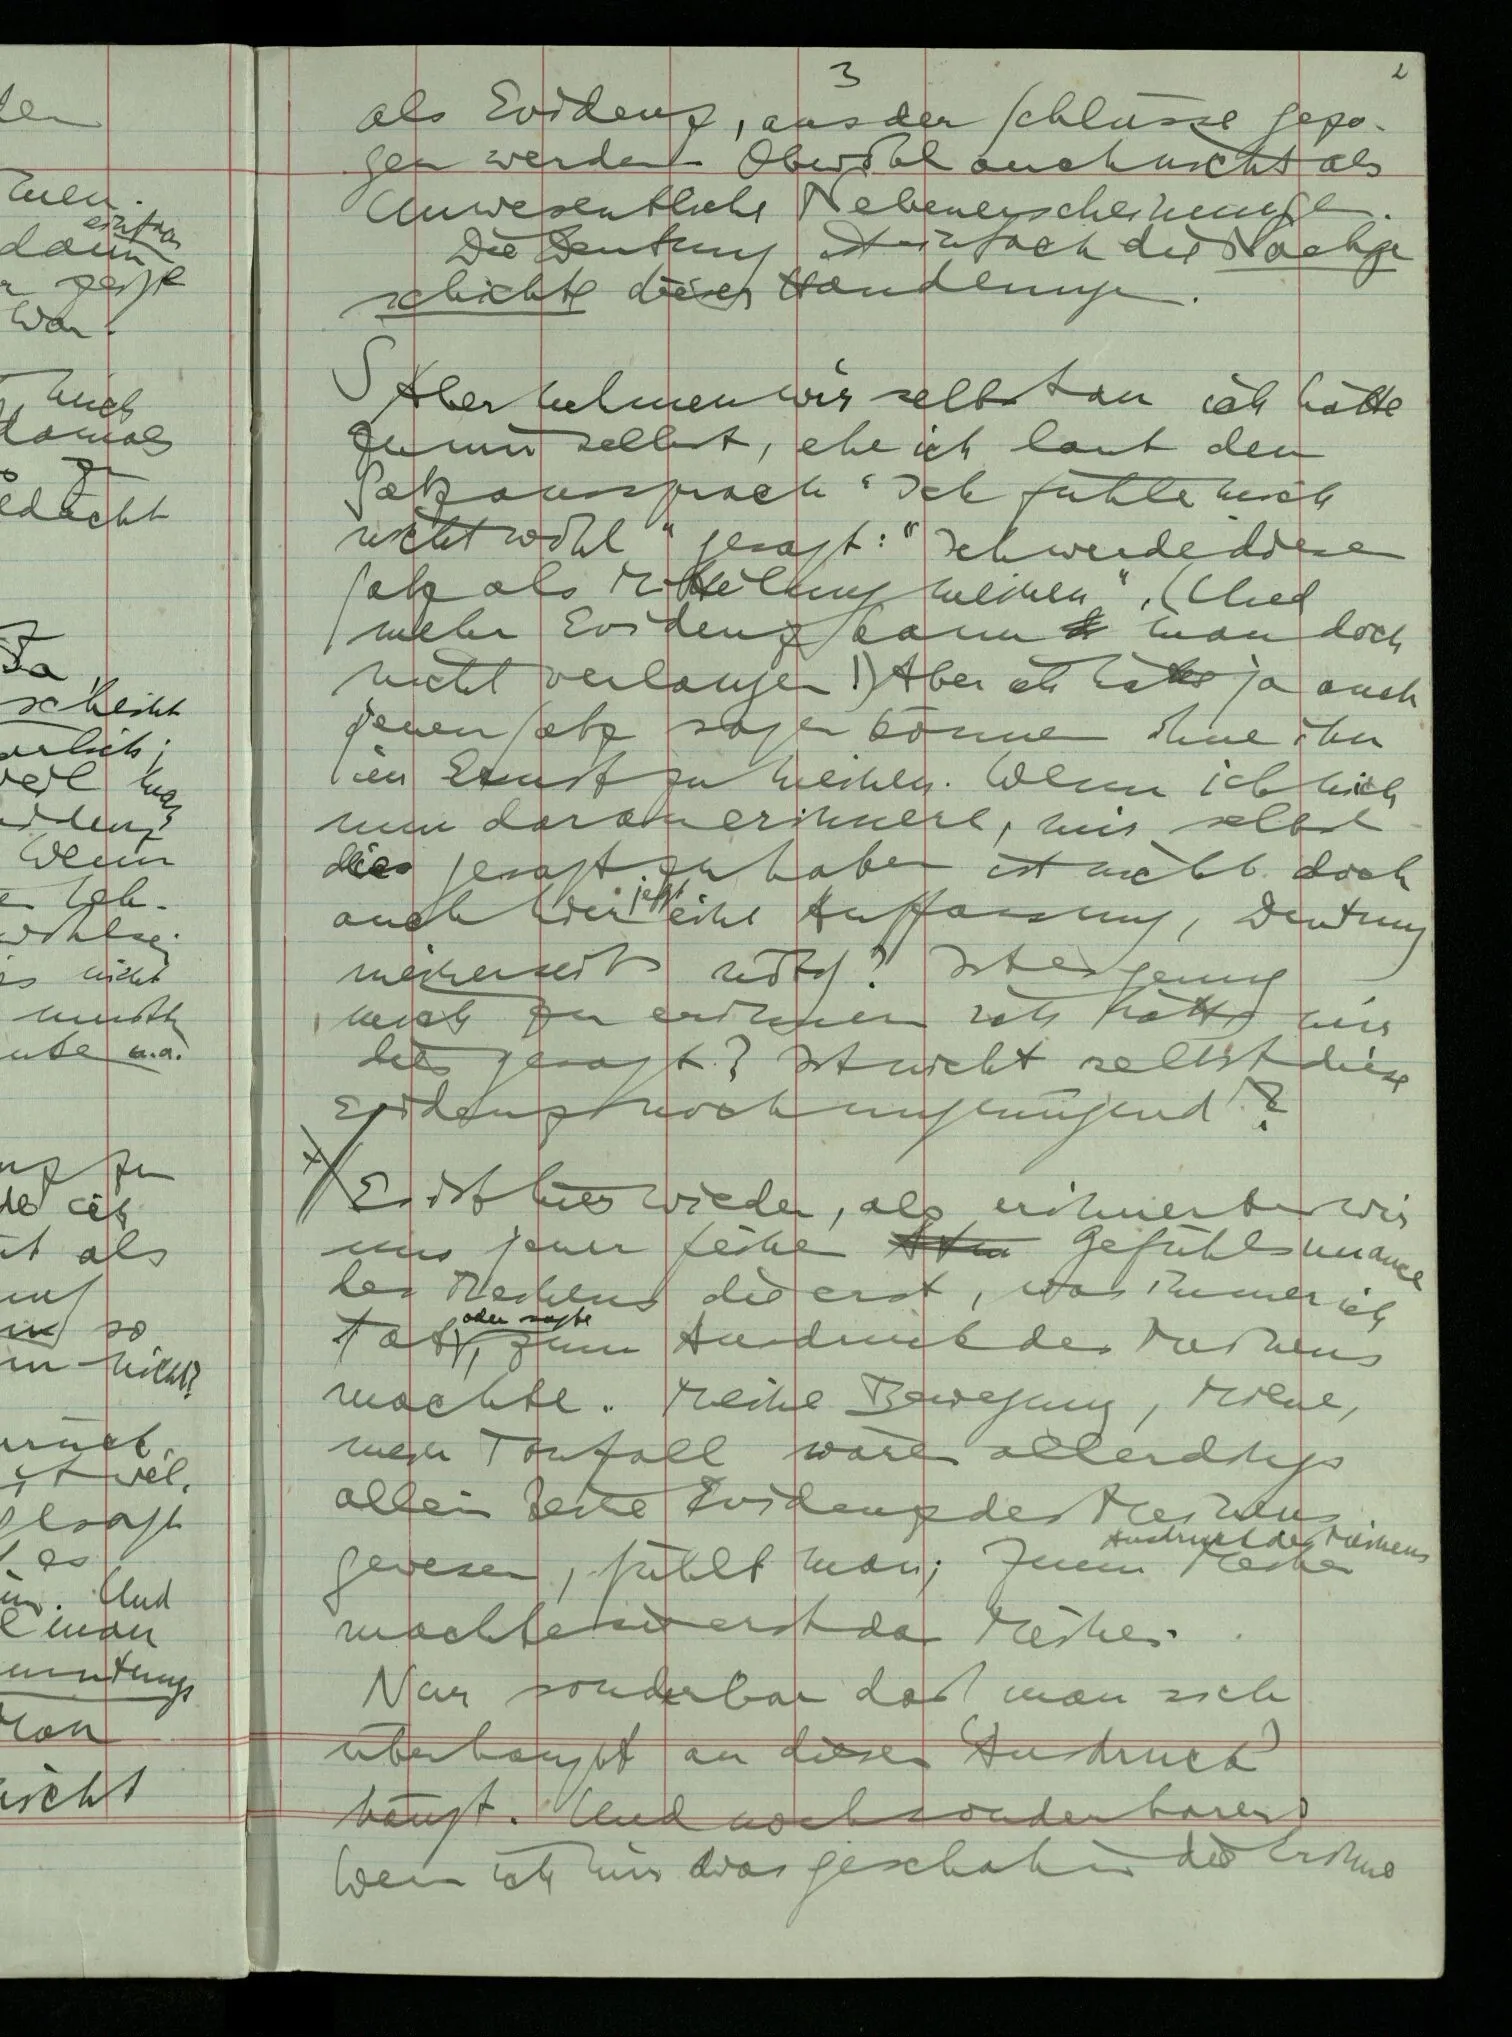 3
2
als Evidenz, aus der Schlüsse gezo-
gen werden. Obwohl auch nicht als
unwesentliche Nebenerscheinungen.
Die Deutung ist einfach die Nachge
schichte dieser Handlungen.
S Aber nehmen wir selbst an ich hätte
zu mir selbst, ehe ich laut den
Satz aussprach "Ich fühle mich
nicht wohl" gesagt: "Ich werde diesen
Satz als Mitteilung meinen". (Und
mehr Evidenz kann man doch
nicht verlangen!) Aber ich hätte ja auch
jenen Satz sagen können ohne ihn
im Ernst zu meinen. Wenn ich mich
nun daran erinnere, mir selbst
dies gesagt zu haben ist nicht doch
auch hier jetzt eine Auffassung, Deutung
meinerseits nötig? Ist es genug
mich zu erinnern ich hätte mir
dies gesagt? Ist nicht selbst diese
Evidenz noch ungenügend?
Es ist hier wieder, als erinnerten wir
uns jener feinen Gefühlsnuance
des Meinens die erst, was immer ich
tat, oder sagte zum Ausdruck des Meinens
machte. Meine Bewegung, Miene,
mein Tonfall wären allerdings
allein keine Evidenz des Meinens
gewesen, fühlt man; zum Meinen Ausdruck des Meinens
machte sie erst das Meinen.
Nur sonderbar daß man sich
überhaupt an diesen 'Ausdruck'
hängt. Und noch sonderbarer:
Wenn ich mir was geschah in die Erinne
den
men.
dann einfach
war.
mich
damals
zu
edacht
Ja
scheint
weil man
Wenn
nicht
u.a.
zu
ich
als
so
nicht?
zurück.
gesagt
es
Und
man
nicht